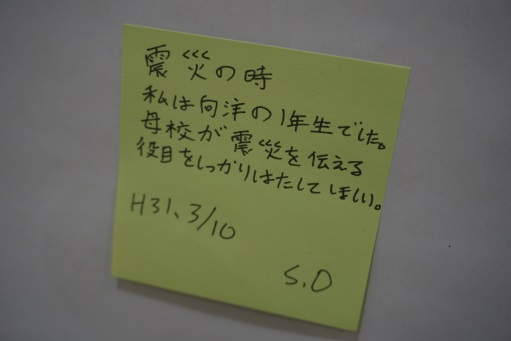 震災の時
私は向洋の1年生でした。
母校が震災を伝える
役目をしっかりはたしてほしい。
H31、3/10
S.O